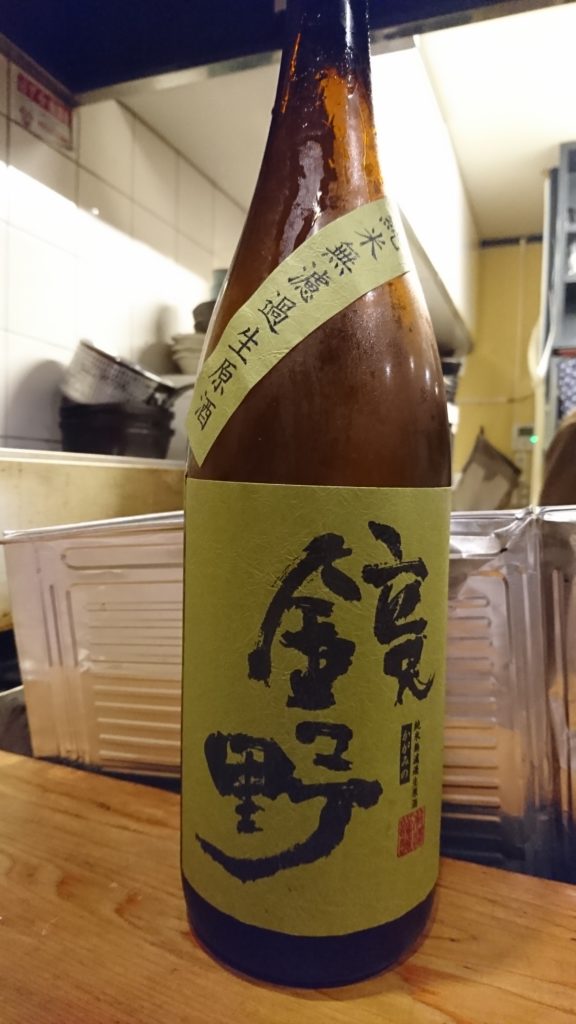 純米無濾過生原酒
鏡野
純米無濾過生原酒
かがみの